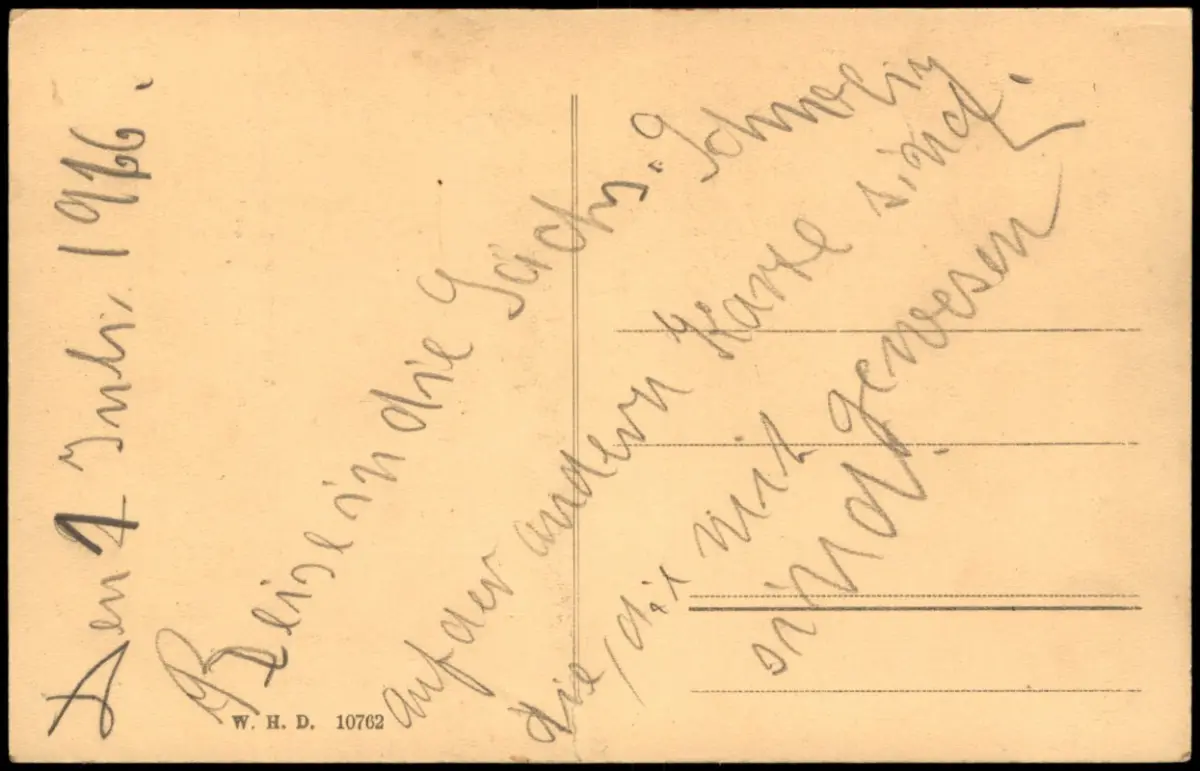 Den 7 Juli, 1966.
Reise in die Sächs. Schweiz
auf der andern Karte sind.
die / die mit gewesen
sind.
W. H. D. 10762